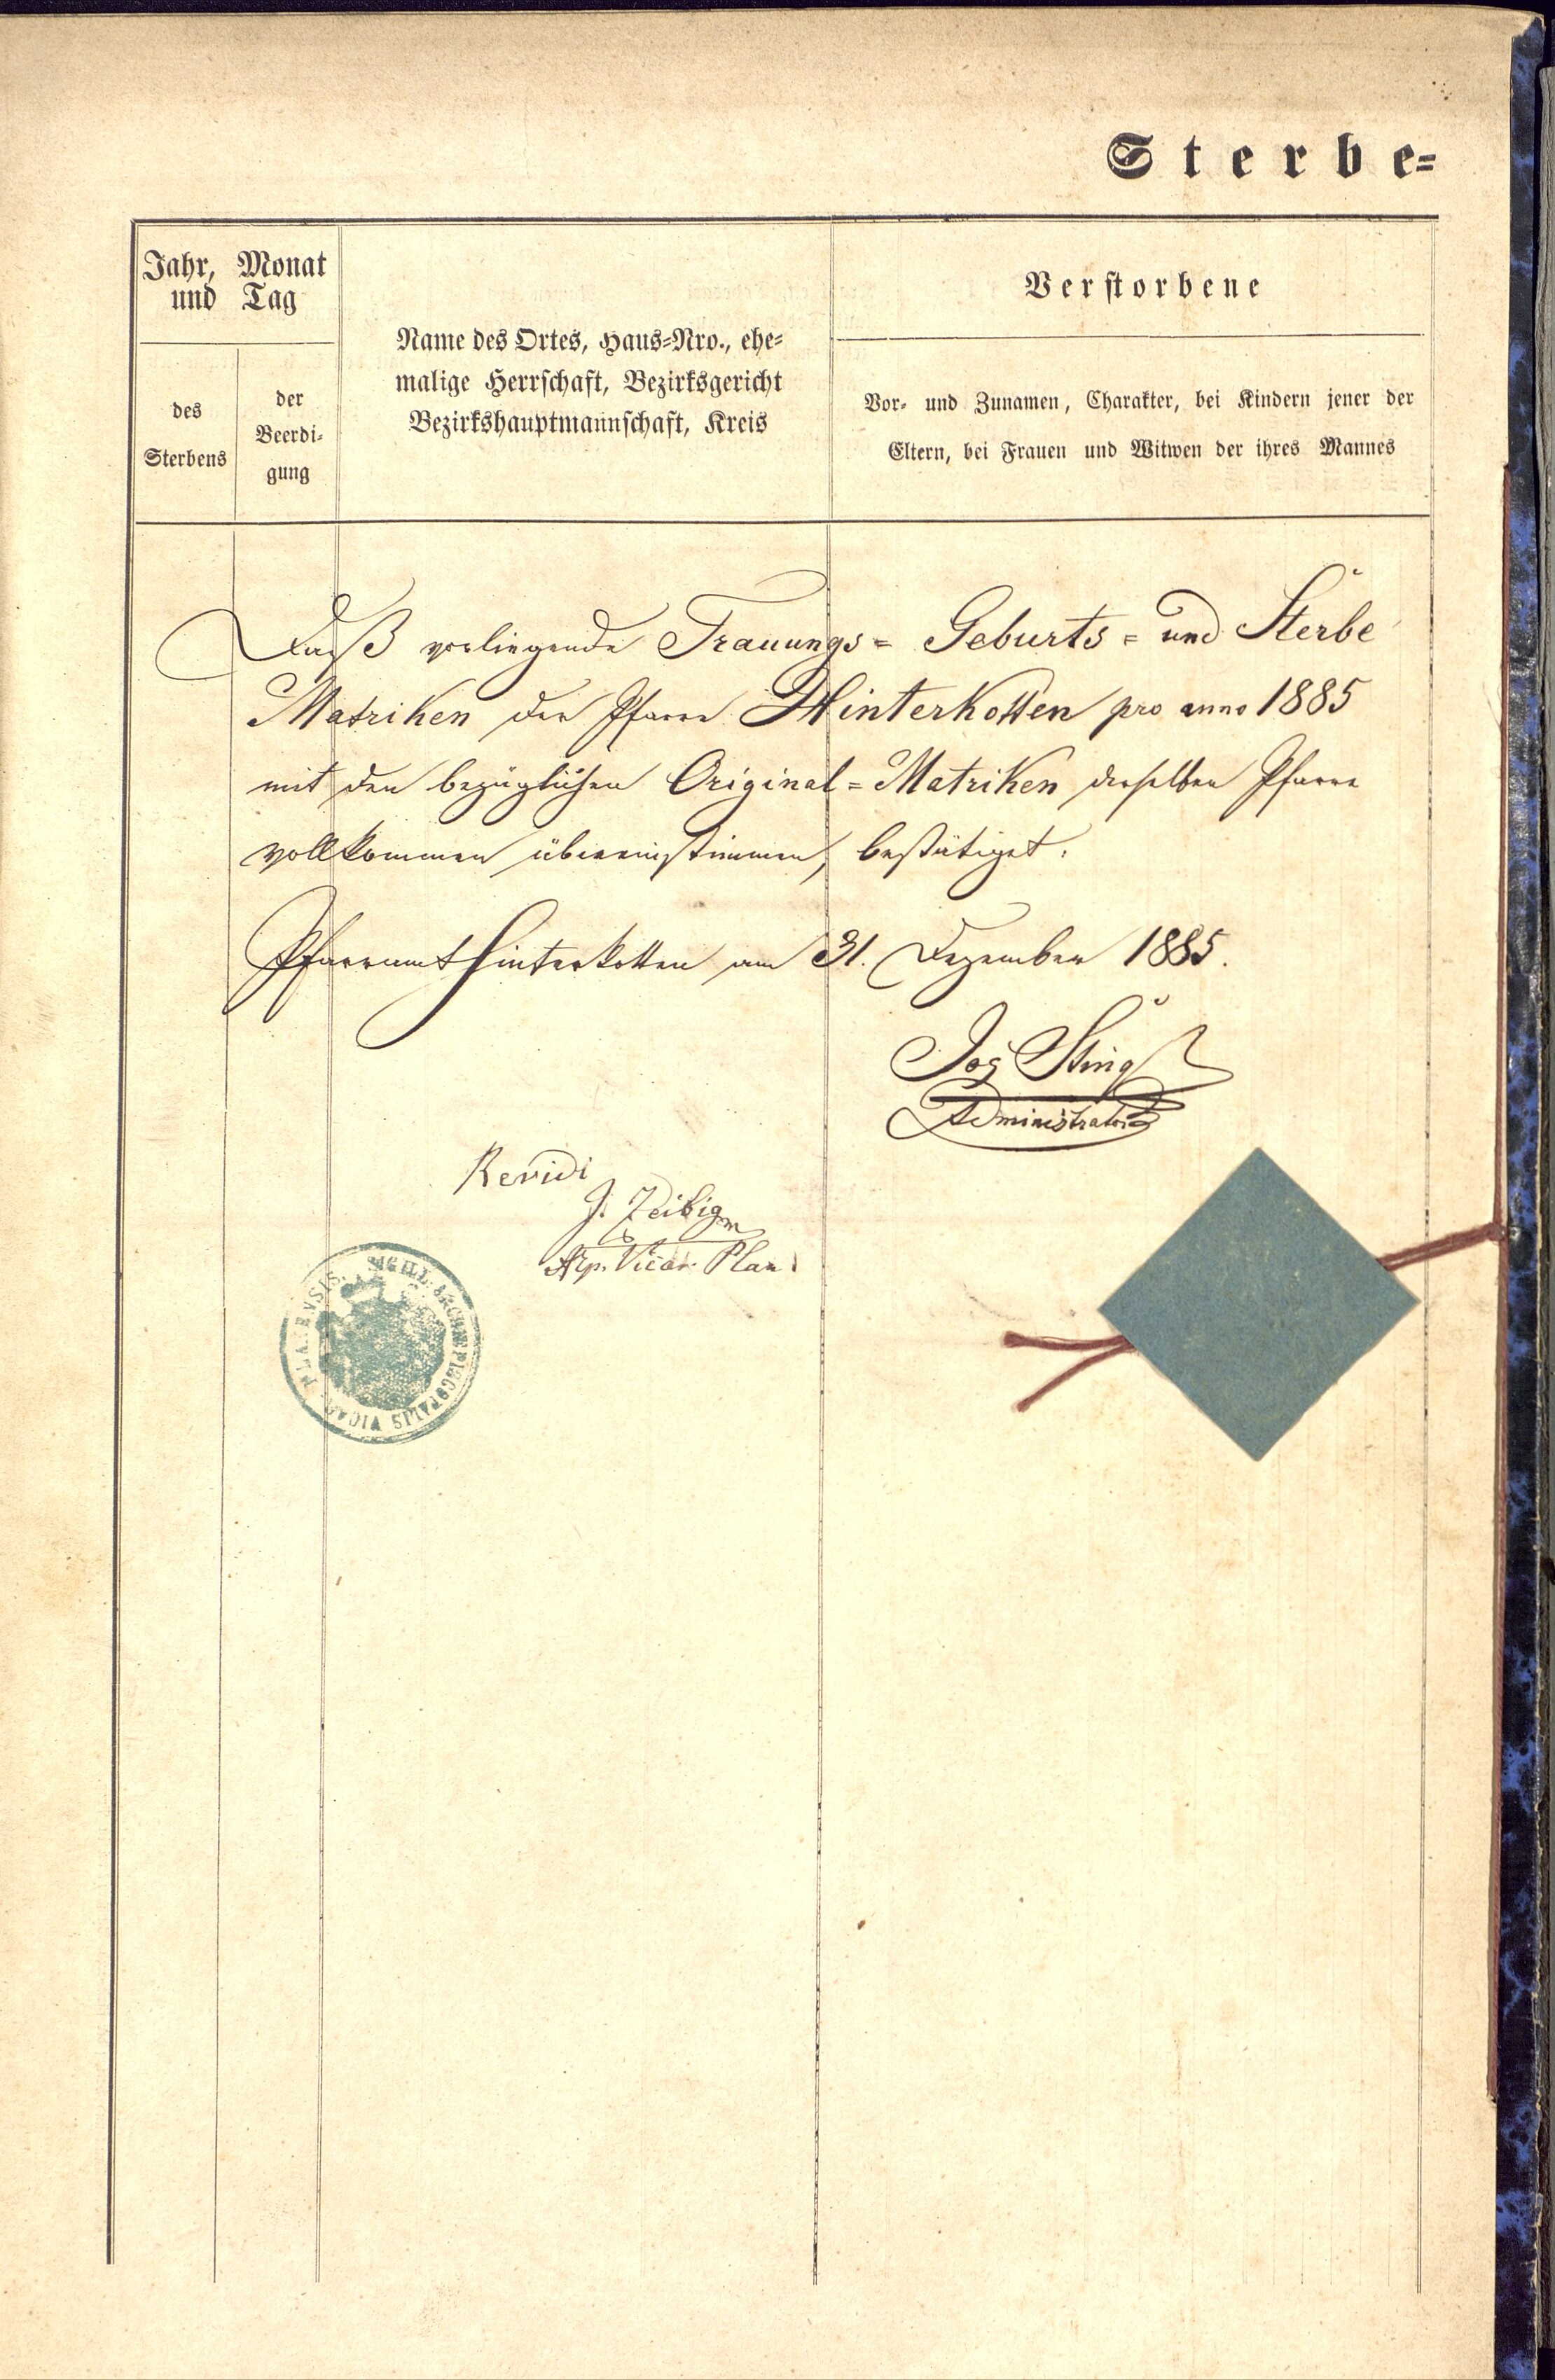 Sterbe=
Jahr, Monat
und Tag
des
Sterbens
der
Beerdi-
gung
Name des Ortes, Haus=Nro., ehe=
malige Herrschaft, Bezirksgericht
Bezirkshauptmannschaft, Kreis
Verstorbene
Vor- und Zunamen, Charakter, bei Kindern jener der
Eltern, bei Frauen und Witwen der ihres Mannes
Daß vorliegende Trauungs= Geburts= und Sterbe
Matriken der Pfarre Hinterkotten pro anno 1885
mit den bezüglichen Original=Matriken derselben Pfarre
vollkommen übereinstimmen, bestätiget.
Pfarramt Hinterkotten am 31. Dezember 1885.
Jos Sting
Administrator
Revidi
J. Zeibig
Vicar. Plan.
SIGILL. ARCHIEPISCOPALIS VICAR. PLANENSIS.